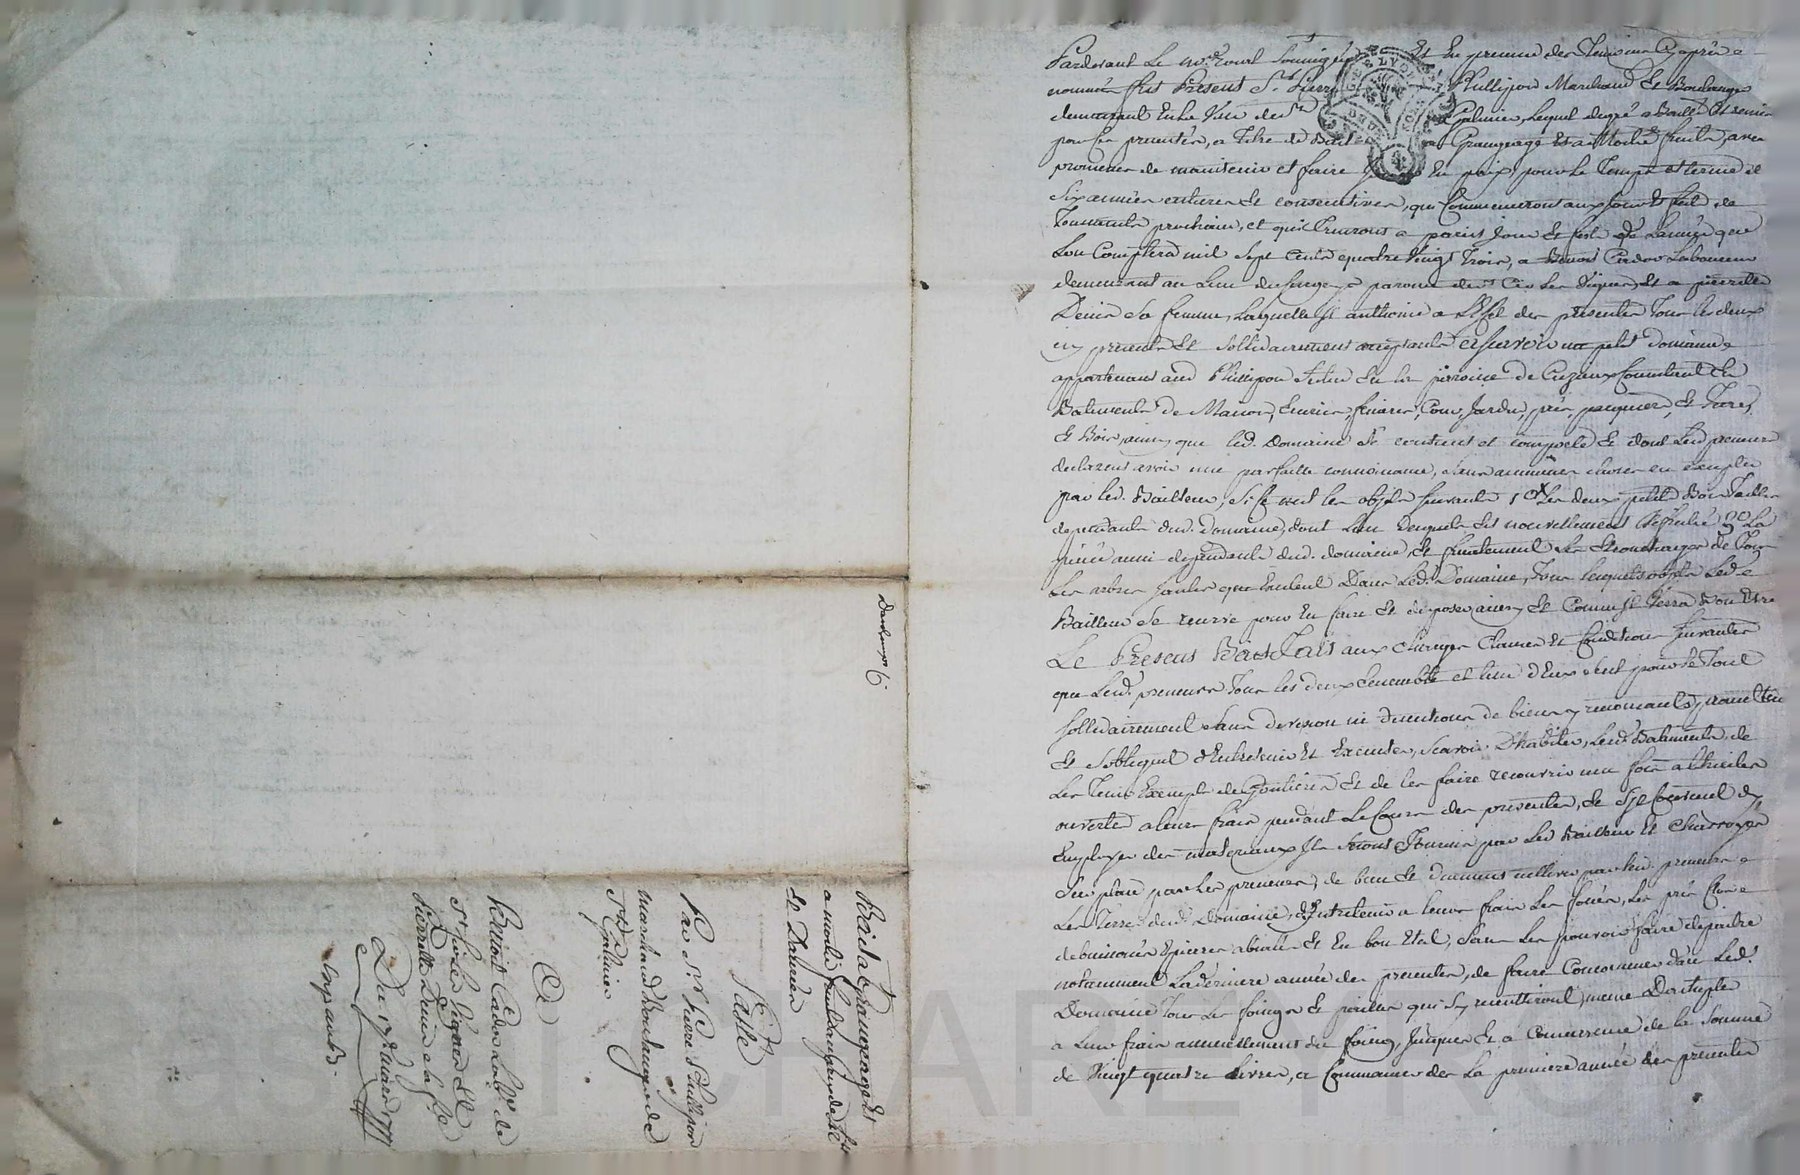 Pardevant Le no.re royal soussigné Et En presence des Temoins Cy après
nommés fut Present Sr. Pierre Phillipon Marchand Et Boulanger
demeurant En La Ville de St. Galmier, Lequel de gré a Baillé Et
par Ces presentes, a Titre de Bail a Grangeage Et a Moitié fruits, avec
promesse de maintenir et faire jouir En paix, pour Le Temps et terme de
Six années entieres Et consecutives, qui Commenceront aux jour Et fest de
Toussaints prochain, et qui finiront a pareils jour Et fest de L'année que
L'on Comptera mil Sept Cents quatre Vingt Trois, a Benoit Cadou Laboureur
demeurant au Lieu de paroisse de St Cir Les Vignes, Et a pierrette
Denis Sa femme, Laquelle il authorise a L'Effet des presentes Tous les deux
icy presents Et Sollidairement acceptants a sçavoir un petit domaine
appartenant aud Phillipon Situé En la parroisse de Cuzieux Consistant En
Batiments de Maison, Ecuries, feniers, Cour, Jardin, prés, paquiers, Et Terres,
Et Bois, ainsy que led. Domaine Se contient et comporte Et dont Lesd preneurs
declarent avoir une parfaite connoissance, Sans aucunes choses en excepter
par led. Bailleur, Si ce n'est les objets suivants 1º Les deux petits Bois Taillis
dependants dud. Domaine, dont L'un Desquels Est nouvellement defriché 2º La
piece aussi dependante dud. domaine, Et finalement Les Ebranchages de Tous
Les arbres qui Sont Dans Led. Domaine, Tous lesquels objets Led.
Bailleur Se reserve pour En faire Et disposer ainsy Et Comme il verra bon Etre
Le Present Bail Fait aux Charges Clauses Et Conditions Suivantes
que Lesd. preneurs Tous les deux Ensemble et l'un d'Eux Seul pour le Tout
Sollidairement Sans division ni discution de biens y renonçants, promettent
Et S'obligent d'Entretenir Et Executer, Scavoir D'habiter, Lesd. Batiments, de
Les Tenir Exempts de Goutieres Et de les faire recouvrir une fois a thuiles
ouverte a leurs frais pendant Le Cours des presentes, Et S'il Convient d'y
Employer des materiaux Ils Seront Fournis par Led Bailleur Et Charroyés
Sur place par Les preneurs, de bien Et duement cultiver par lesd. preneurs
Les Terres dud. Domaine, d'Entretenir a leurs frais Les fossés, Les prés Clos
de buissons Epinés abreuvés Et En bon Etat, Sans Les pouvoir faire depaitre
notamment La derniere année des presentes, de faire Consommer dans Led.
Domaine Tous Les foings Et pailles qui S'y recueilliront, meme D'acheter
a Leurs frais annuellement du foing, Jusques Et a Concurrence de la Somme
de Vingt quatre Livres, a Commencer des La premiere année des presentes
Bail a Grangeage Et
a moitié fruits
Et Denrées
Passé
Par Sr. Pierre Phillipon
marchand Boulanger de
St. Galmier
A
Benoit Cadou Lab.r de
St Cir Les Vignes Et
Pierrette Denis
Du 17e mars 1777